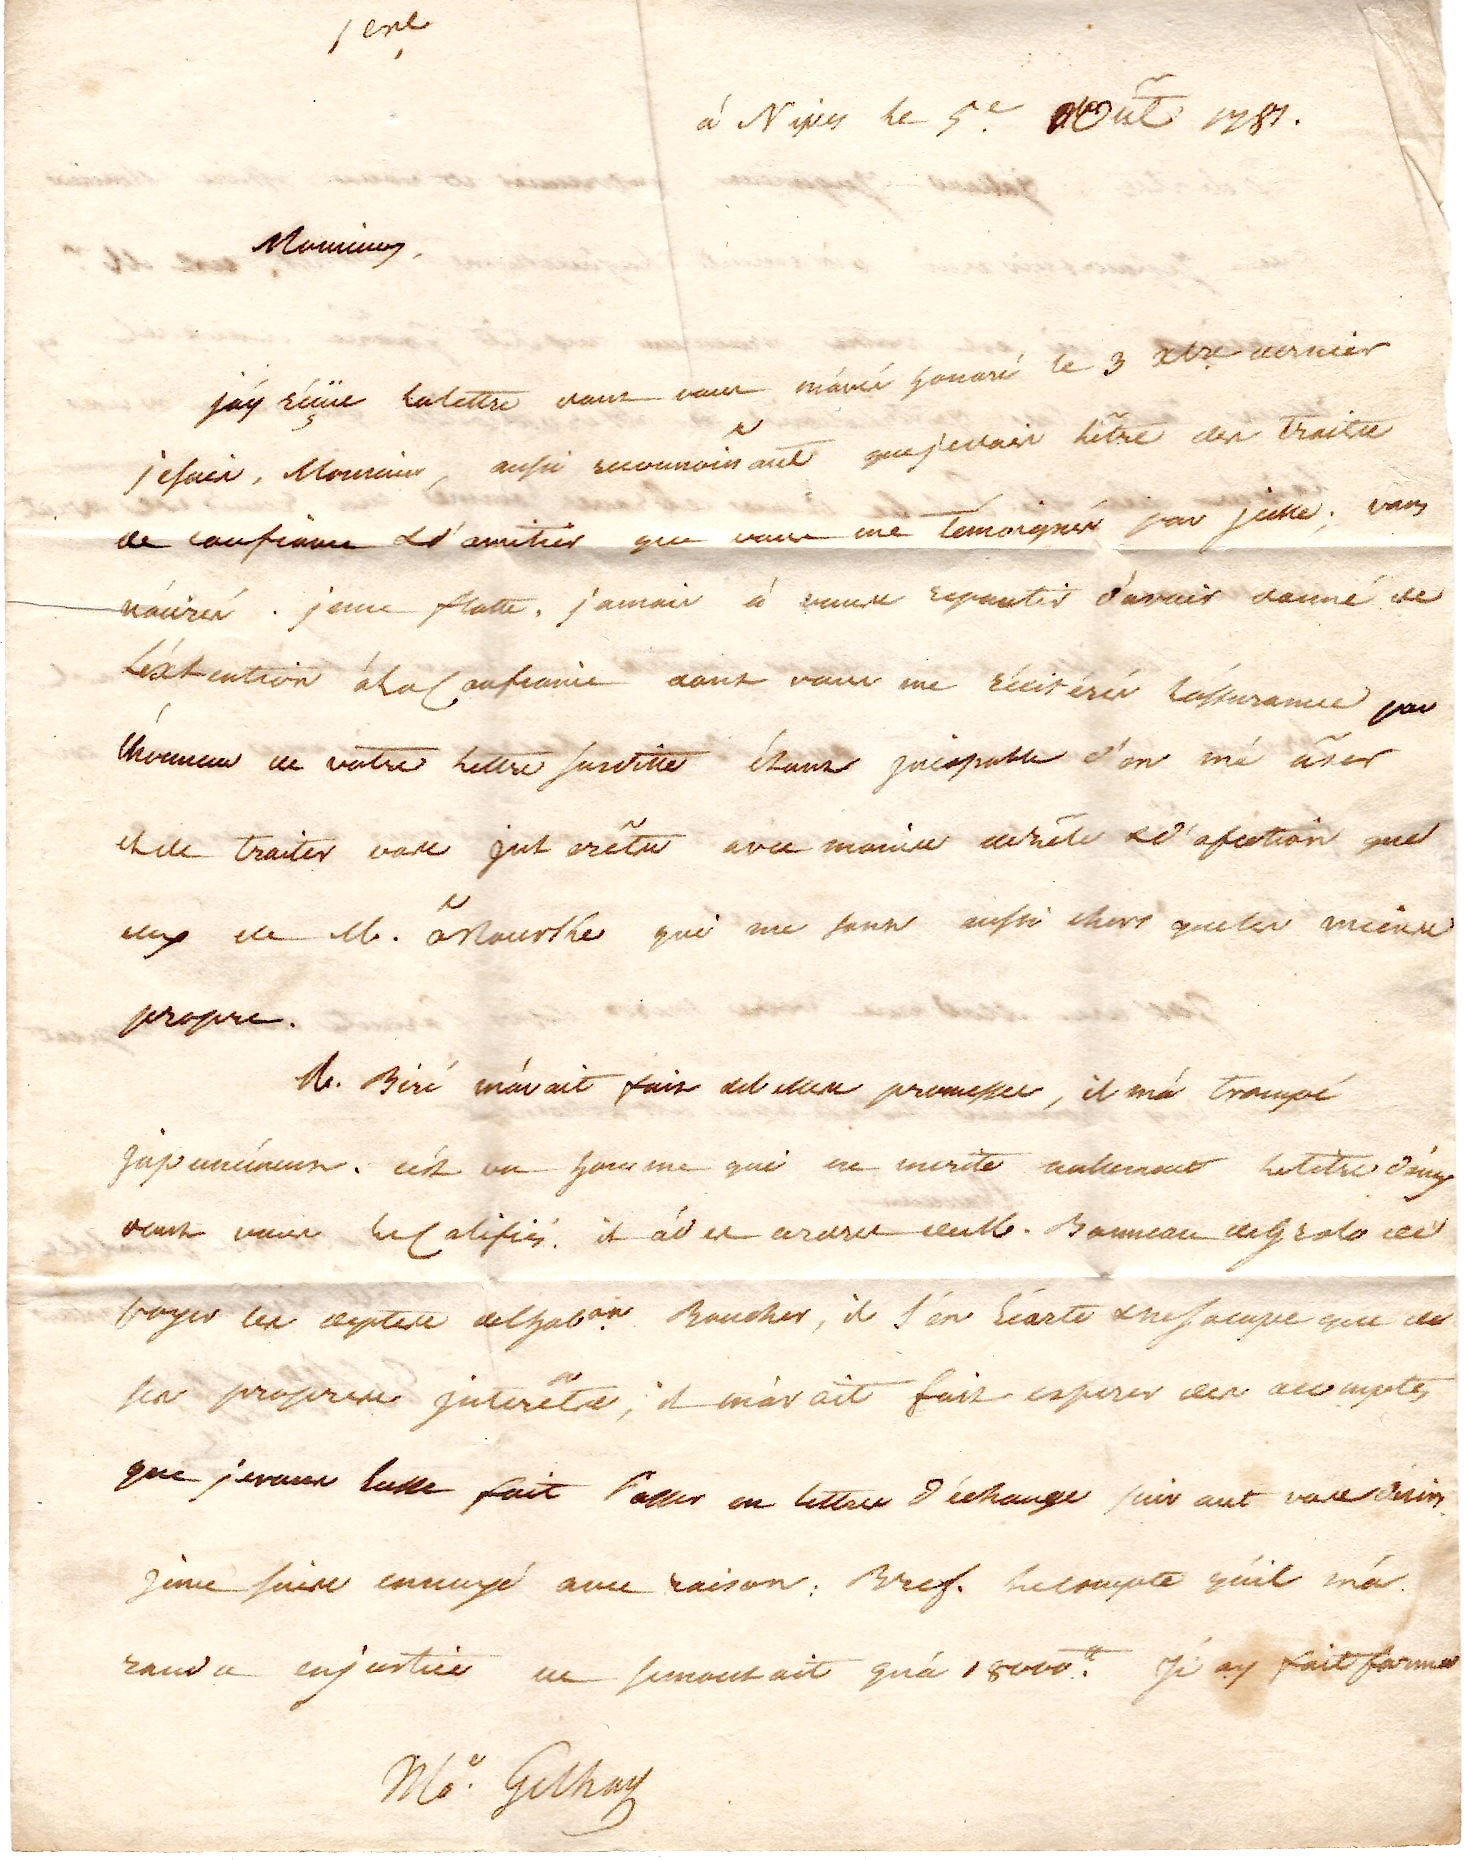 1 exp.
à Nipes le 5e. Août 1781.
Monsieur,
jáy réçüe la lettre dont vous m'avés honoré le 3 xbre dernier
je suis, Monsieur, aussi reconnoissant que je dois l'être des traits
de confiance & d'amitiés que vous me témoignés par icelle; vous
n'aurés. je me flatte, jamais à vous repentir d'avoir donné de
l'éxtention à la Confiance dont vous me réiterés l'assurance par
l'honneur de votre lettre susditte étant incapable d'en
et de traiter vos jnterêts avec moins de zêle & d'afection que
ceux de M. ôRourke qui me sont aussi chers que les miens
propre.
M. Biré m'avait fait de belles promesses, il m'a trompé
c'est un homme qui ne merite nullement le titre d'amy
dont vous le Calefiés. il a des ordres de M. Bonneau de
payer les dettes de Boucher, il s'en écarte & ne s'ocupe que de
ses propres jnterêts, il m'avait fait esperer des accomptes
que je vous eusse fait Passer en lettres d'échange suivant vos desirs
avec raison: Bref. le compte qu'il m'a
rendu en justice ne se montait qu'à 18000ll. J'ay fait former
Mr. Gelhay